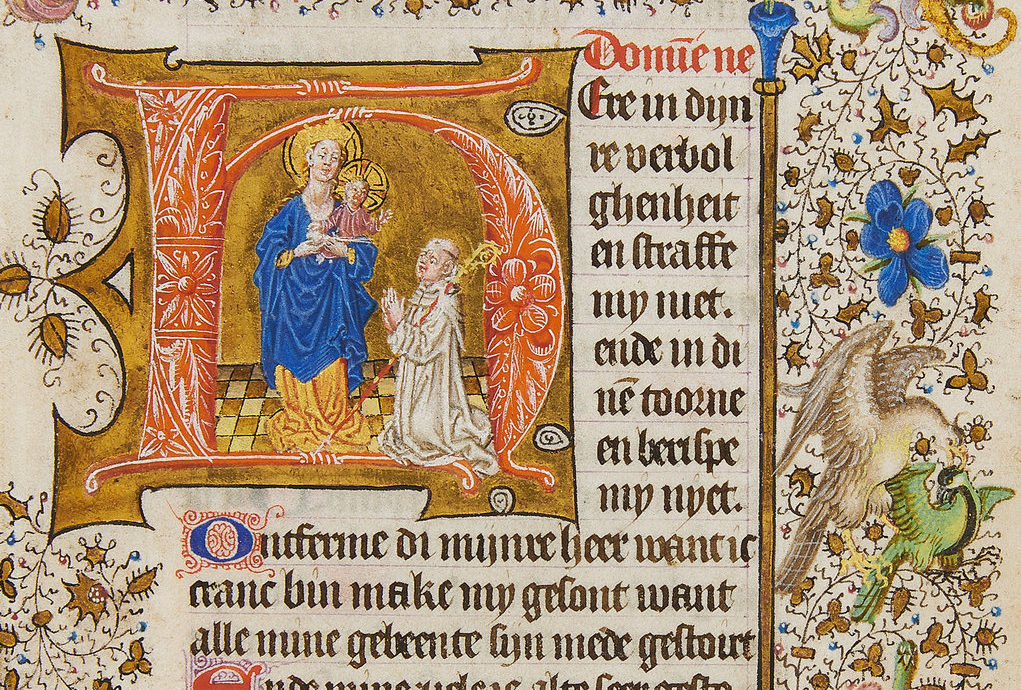 Domīe ne
HEre in dijn
re verbol
ghenheit
en straffe
my niet.
ende in di
nē toorne
en berispe
my nyet.
Ontferme di mijnre heer want ic
cranc bin make my gesont want
alle mine gebeente sijn mede gestoert
Ende mine ziele is alte seer gesto